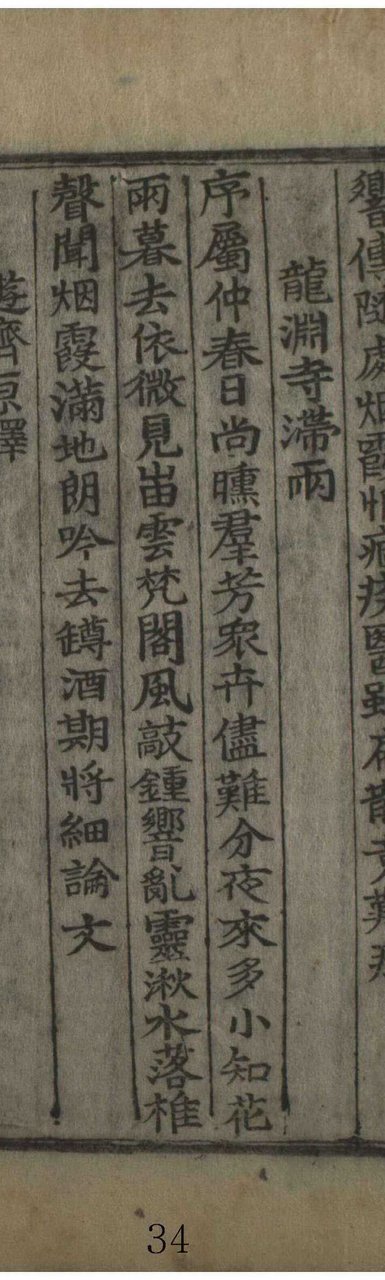 龍淵寺滯雨
序屬仲春日尚曛羣芳衆卉儘難分夜來多小知花
雨暮去依微見岀雲梵閣風敲鍾響亂靈湫水落樵
聲聞烟霞滿地朗吟去罇酒期將細論文
34